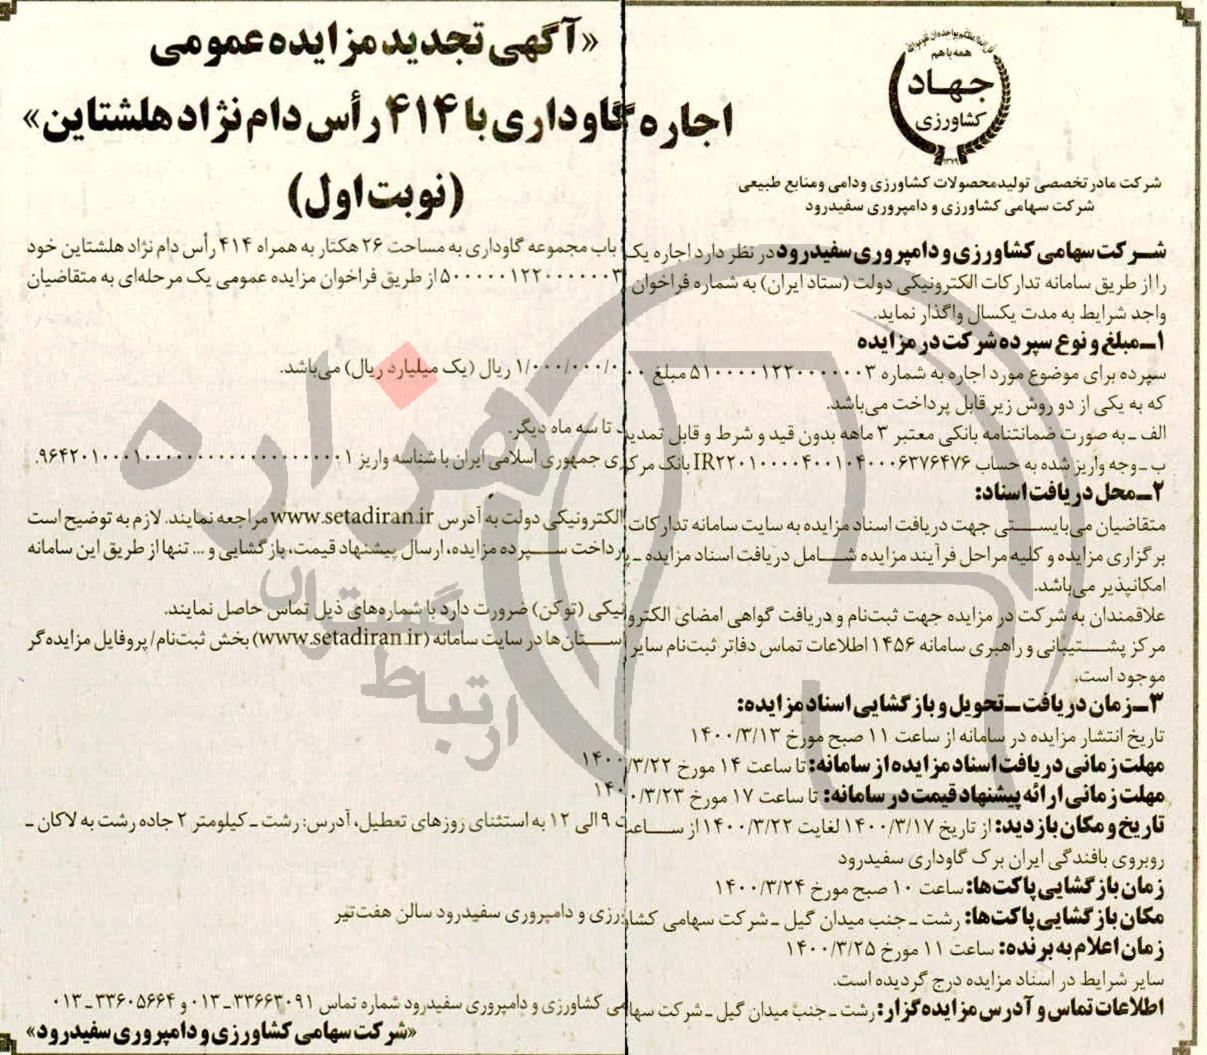 همه با هم
جهاد
کشاورزی
۱۳۷۹
شرکت مادر تخصصی تولید محصولات کشاورزی ودامی ومنابع طبیعی
شرکت سهامی کشاورزی و دامپروری سفیدرود
«آگهی تجدید مزایده عمومی
اجاره گاوداری با ۴۱۴ رأس دام نژاد هلشتاین»
(نوبت اول)
شرکت سهامی کشاورزی و دامپروری سفیدرود در نظر دارد اجاره یک باب مجموعه گاوداری به مساحت ۲۶ هکتار به همراه ۴۱۴ رأس دام نژاد هلشتاین خود
را از طریق سامانه تدارکات الکترونیکی دولت (ستاد ایران) به شماره فراخوان ۵۰۰۰۰۰۱۲۲۰۰۰۰۰۰۳ از طریق فراخوان مزایده عمومی یک مرحله‌ای به متقاضیان
واجد شرایط به مدت یکسال واگذار نماید.
۱ـ مبلغ و نوع سپرده شرکت در مزایده
سپرده برای موضوع مورد اجاره به شماره ۵۱۰۰۰۰۱۲۲۰۰۰۰۰۰۳ مبلغ ۱/۰۰۰/۰۰۰/۰۰۰ ریال (یک میلیارد ریال) می‌باشد.
که به یکی از دو روش زیر قابل پرداخت می‌باشد.
الف ـ به صورت ضمانتنامه بانکی معتبر ۳ ماهه بدون قید و شرط و قابل تمدید تا سه ماه دیگر.
ب ـ وجه واریز شده به حساب IR۲۲۰۱۰۰۰۰۴۰۰۱۰۴۰۰۰۶۳۷۶۴۷۶ بانک مرکزی جمهوری اسلامی ایران با شناسه واریز
۲ـ محل دریافت اسناد:
متقاضیان می‌بایستی جهت دریافت اسناد مزایده به سایت سامانه تدارکات الکترونیکی دولت به آدرس www.setadiran.ir مراجعه نمایند. لازم به توضیح است
برگزاری مزایده و کلیه مراحل فرآیند مزایده شامل دریافت اسناد مزایده ـ پرداخت سپرده مزایده، ارسال پیشنهاد قیمت، بازگشایی و ... تنها از طریق این سامانه
امکانپذیر می‌باشد.
علاقمندان به شرکت در مزایده جهت ثبت‌نام و دریافت گواهی امضای الکترونیکی (توکن) ضرورت دارد با شماره‌های ذیل تماس حاصل نمایند.
مرکز پشتیبانی و راهبری سامانه ۱۴۵۶ اطلاعات تماس دفاتر ثبت‌نام سایر استان‌ها در سایت سامانه (www.setadiran.ir) بخش ثبت‌نام/ پروفایل مزایده‌گر
موجود است.
۳ـ زمان دریافت ـ تحویل و بازگشایی اسناد مزایده:
تاریخ انتشار مزایده در سامانه از ساعت ۱۱ صبح مورخ ۱۴۰۰/۳/۱۳
مهلت زمانی دریافت اسناد مزایده از سامانه: تا ساعت ۱۴ مورخ ۱۴۰۰/۳/۲۲
مهلت زمانی ارائه پیشنهاد قیمت در سامانه: تا ساعت ۱۷ مورخ ۱۴۰۰/۳/۲۳
تاریخ و مکان بازدید: از تاریخ ۱۴۰۰/۳/۱۷ لغایت ۱۴۰۰/۳/۲۲ از ساعت ۹ الی ۱۲ به استثنای روزهای تعطیل، آدرس: رشت ـ کیلومتر ۲ جاده رشت به لاکان ـ
روبروی بافندگی ایران برک گاوداری سفیدرود
زمان بازگشایی پاکت‌ها: ساعت ۱۰ صبح مورخ ۱۴۰۰/۳/۲۴
مکان بازگشایی پاکت‌ها: رشت ـ جنب میدان گیل ـ شرکت سهامی کشاورزی و دامپروری سفیدرود سالن هفت‌تیر
زمان اعلام به برنده: ساعت ۱۱ مورخ ۱۴۰۰/۳/۲۵
سایر شرایط در اسناد مزایده درج گردیده است.
اطلاعات تماس و آدرس مزایده‌گزار: رشت ـ جنب میدان گیل ـ شرکت سهامی کشاورزی و دامپروری سفیدرود شماره تماس ۳۳۶۶۳۰۹۱ـ۰۱۳ و ۳۳۶۰۵۶۶۴ـ۰۱۳
«شرکت سهامی کشاورزی و دامپروری سفیدرود»
هزاره
گستران
ارتباط